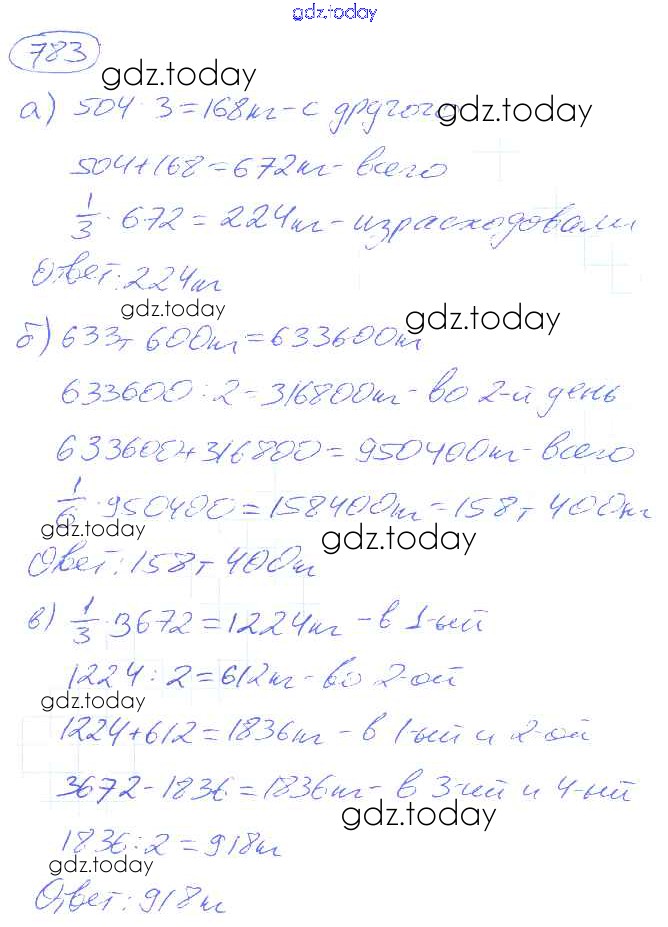 gdz.today
783
gdz.today
а) 504 : 3 = 168 кг - с другого gdz.today
504 + 168 = 672 кг - всего
1/3 · 672 = 224 кг - израсходовали
Ответ: 224 кг
gdz.today gdz.today
б) 633т 600кг = 633600кг
633600 : 2 = 316800кг - во 2-й день
633600 + 316800 = 950400кг - всего
1/6 · 950400 = 158400кг = 158т 400кг
gdz.today gdz.today
Ответ: 158т 400кг
в) 1/3 · 3672 = 1224кг - в 1-ый
1224 : 2 = 612кг - во 2-ой
gdz.today
1224 + 612 = 1836кг - в 1-ый и 2-ой
3672 - 1836 = 1836кг - в 3-ий и 4-ый
gdz.today
1836 : 2 = 918кг
gdz.today
Ответ: 918кг